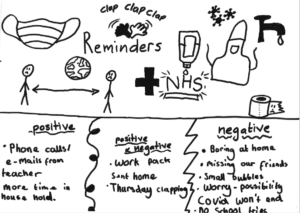 clap clap clap
Reminders
NHS
positive
• Phone calls/
e-mails from
teacher
more time in
house hold.
positive
& negative
• Work pack
sent home
• Thursday clapping
negative
• Boring at home
• missing our friends
• Small bubbles
• Worry - possibility
Covid won't end
• No school trips